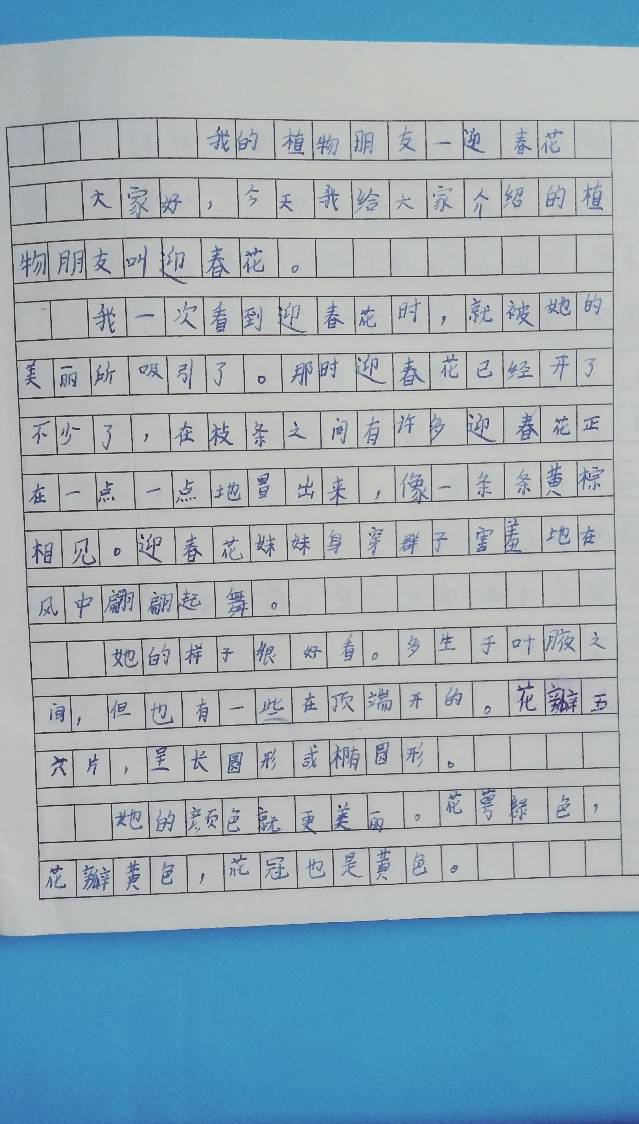 我的植物朋友一迎春花
大家好，今天我给大家介绍的植
物朋友叫迎春花。
我一次看到迎春花时，就被她的
美丽所吸引了。那时迎春花已经开了
不少了，在枝条之间有许多迎春花正
在一点一点地冒出来，像一条条黄棕
相见。迎春花妹妹身穿群子害羞地在
风中翩翩起舞。
她的样子很好看。多生于叶腋之
间，但也有一些在顶端开的。花瓣五
六片，呈长圆形或椭圆形。
她的颜色就更美丽。花萼绿色，
花瓣黄色，花冠也是黄色。